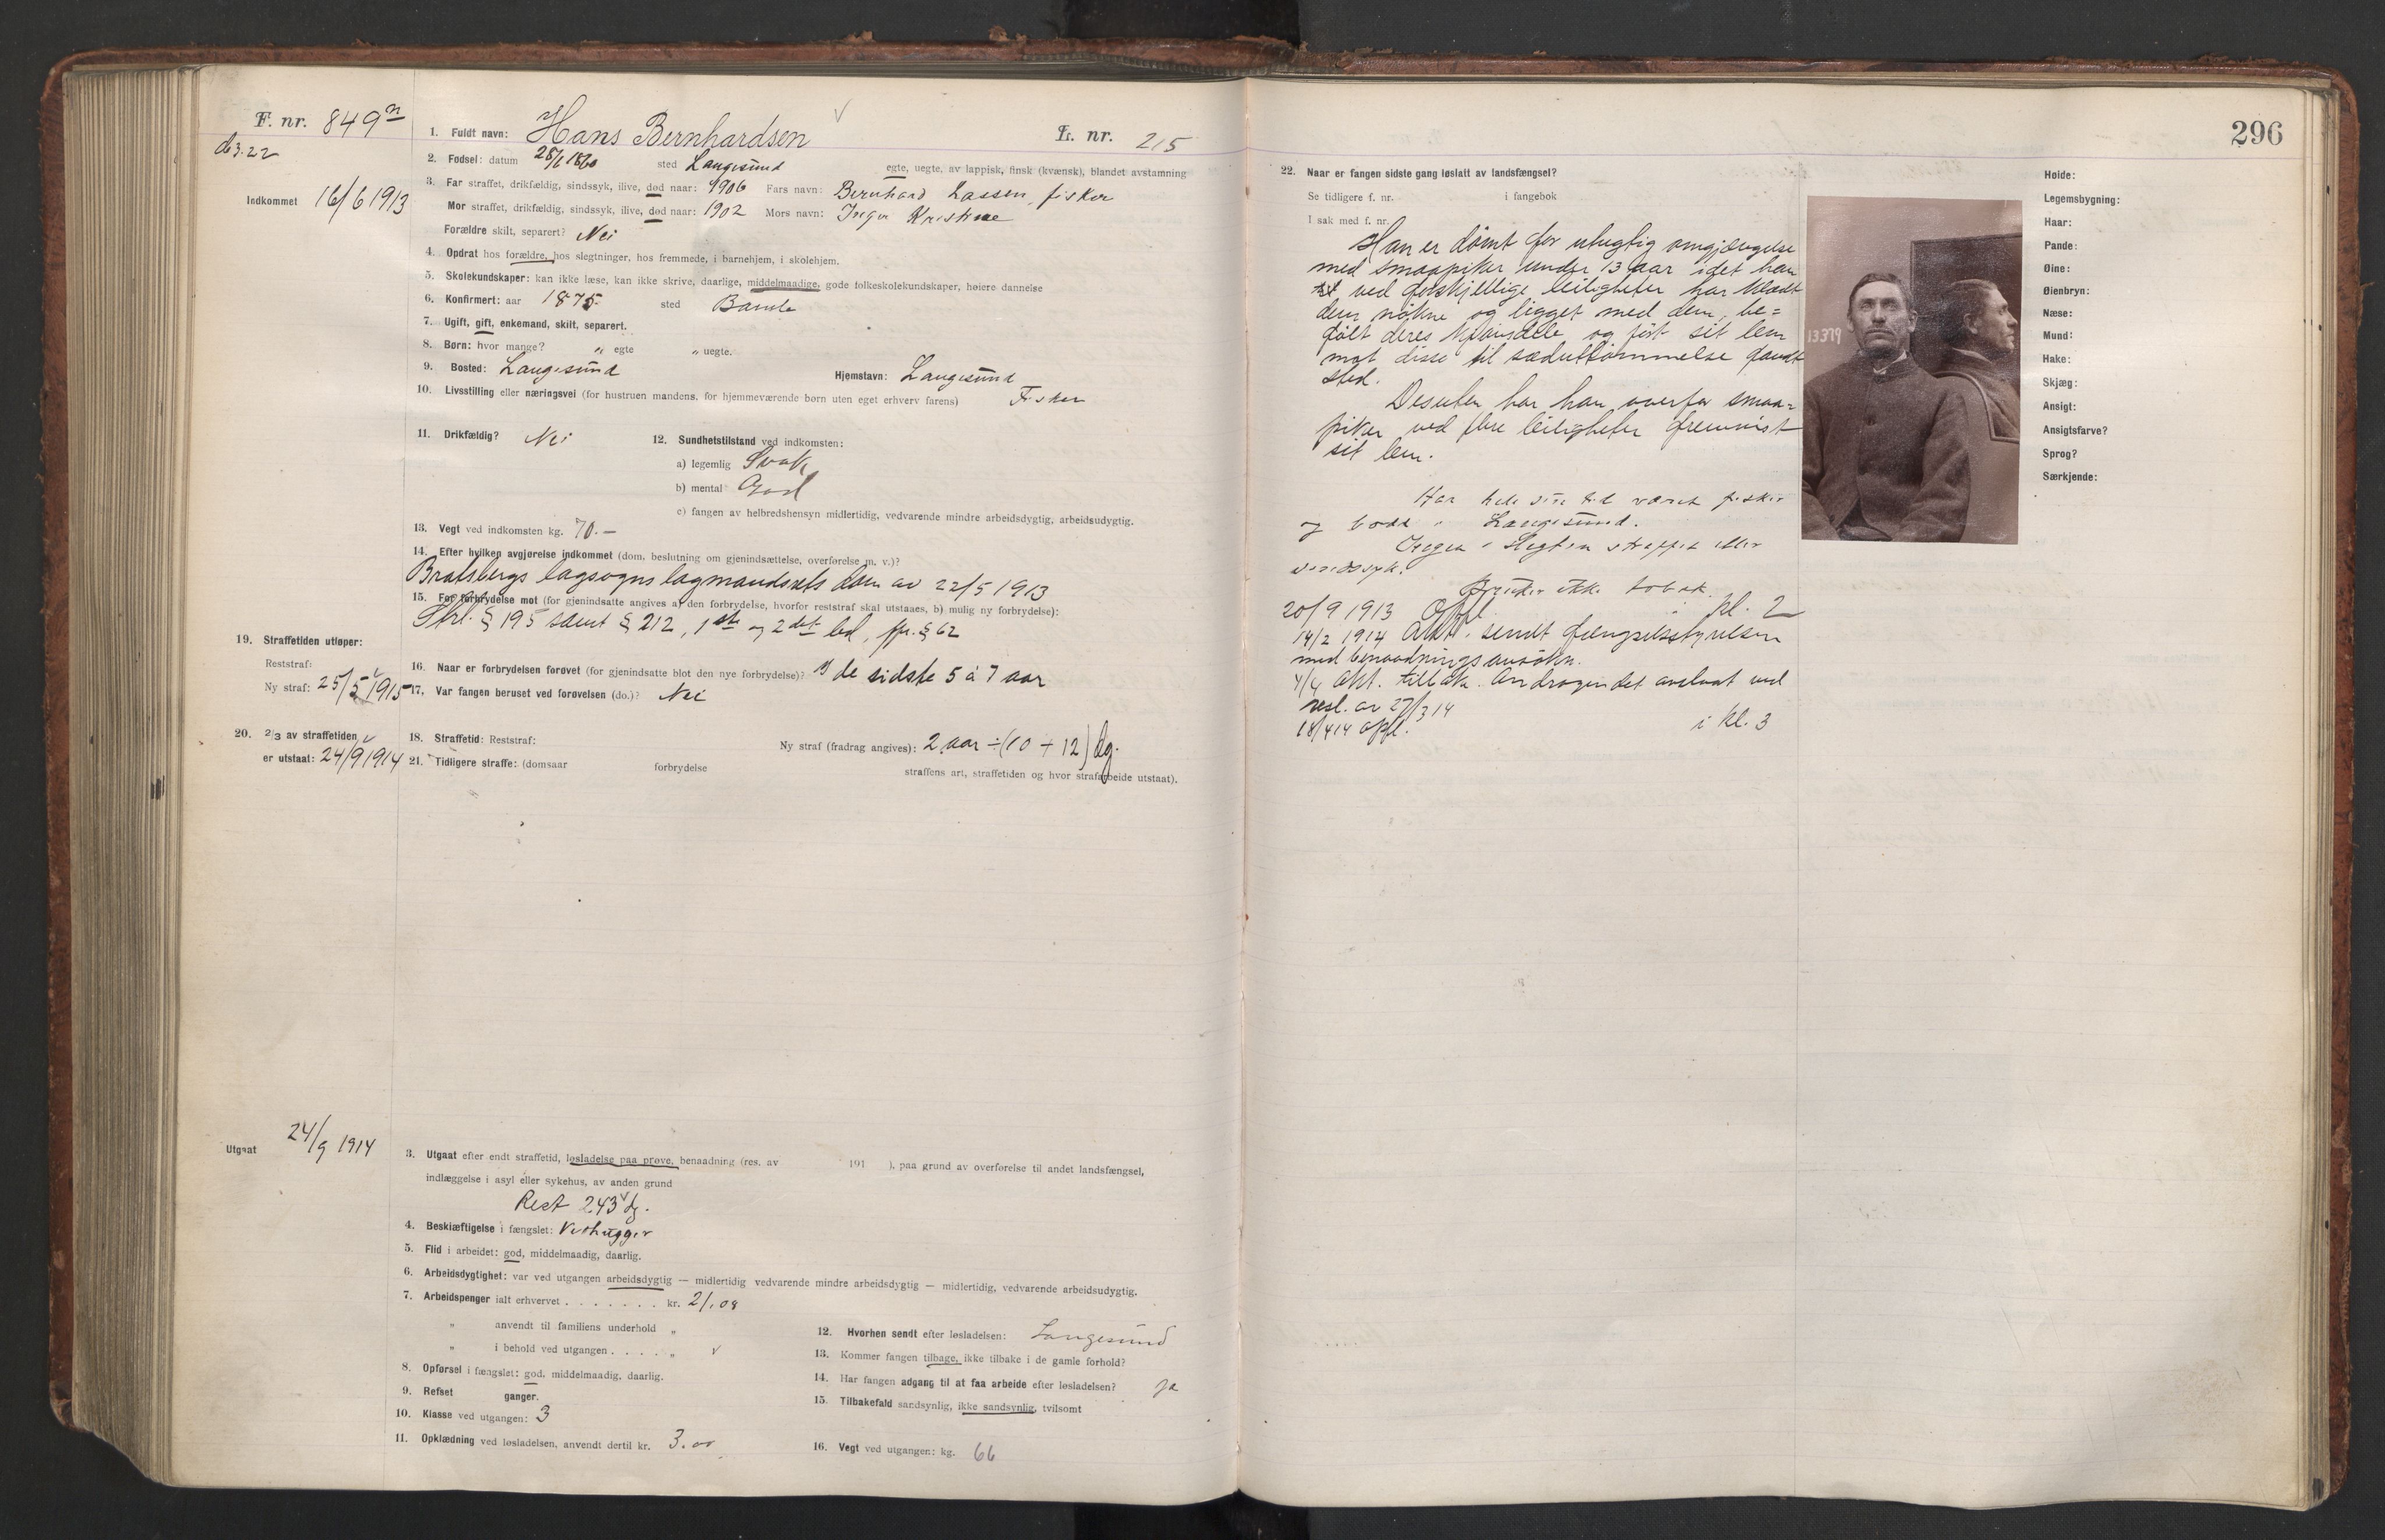 F. nr. 849
Indkommet 16/6 1913
1. Fuldt navn: Hans Bernhardsen L. nr. 215
2. Fødsel: datum 28/1 1860 sted Langesund egte, uegte, av lappisk, finsk (kvænsk), blandet avstamning
3. Far straffet, drikfældig, sindssyk, ilive, død naar: 1906 Fars navn: Bernhard Lassen, fisker
Mor straffet, drikfældig, sindssyk, ilive, død naar: 1902 Mors navn: Inger Kristine
Forældre skilt, separert? Nei
4. Opdrat hos forældre, hos slegtninger, hos fremmede, i barnehjem, i skolehjem.
5. Skolekundskaper: kan ikke læse, kan ikke skrive, daarlige, middelmaadige, gode folkeskolekundskaper, høiere dannelse
6. Konfirmert: aar 1875 sted Bamle
7. Ugift, gift, enkemand, skilt, separert.
8. Børn: hvor mange? „ egte „ uegte.
9. Bosted: Langesund Hjemstavn: Langesund
10. Livsstilling eller næringsvei (for hustruen mandens, for hjemmeværende børn uten eget erhverv farens) Fisker
11. Drikfældig? Nei 12. Sundhetstilstand ved indkomsten:
a) legemlig Svak
b) mental God
c) fangen av helbredshensyn midlertidig, vedvarende mindre arbeidsdygtig, arbeidsudygtig.
13. Vegt ved indkomsten kg. 70.-
14. Efter hvilken avgjørelse indkommet (dom, beslutning om gjenindsættelse, overførelse m. v.)?
Bratsbergs lagsogns lagmandsrets dom av 22/5 1913
15. For forbrydelse mot (for gjenindsatte angives a) den forbrydelse, hvorfor reststraf skal utstaaes, b) mulig ny forbrydelse):
Strl. § 195 samt § 212, 1ste og 2det led, jfr. § 62
19. Straffetiden utløper:
Reststraf:
Ny straf: 25/5 1915
16. Naar er forbrydelsen forøvet (for gjenindsatte blot den nye forbrydelse)? I de sidste 5 à 7 aar
17. Var fangen beruset ved forøvelsen (do.)? Nei
20. 2/3 av straffetiden
er utstaat: 24/9 1914
18. Straffetid: Reststraf: Ny straf (fradrag angives): 2 aar ÷ (10 + 12) dg.
21. Tidligere straffe: (domsaar forbrydelse straffens art, straffetiden og hvor strafarbeide utstaat).
Utgaat 24/9 1914
3. Utgaat efter endt straffetid, løsladelse paa prøve, benaadning (res. av 191 ), paa grund av overførelse til andet landsfængsel,
indlæggelse i asyl eller sykehus, av anden grund
Rest 243 dg.
4. Beskjæftigelse i fængslet: Vedhugger
5. Flid i arbeidet: god, middelmaadig, daarlig.
6. Arbeidsdygtighet: var ved utgangen arbeidsdygtig — midlertidig vedvarende mindre arbeidsdygtig — midlertidig, vedvarende arbeidsudygtig.
7. Arbeidspenger ialt erhvervet . . . . . . . kr. 21.08
„ anvendt til familiens underhold „
„ i behold ved utgangen . . . . „
8. Opførsel i fængslet: god, middelmaadig, daarlig.
9. Refset ganger.
10. Klasse ved utgangen: 3
11. Opklædning ved løsladelsen, anvendt dertil kr. 3.00
12. Hvorhen sendt efter løsladelsen: Langesund
13. Kommer fangen tilbage, ikke tilbake i de gamle forhold?
14. Har fangen adgang til at faa arbeide efter løsladelsen? Ja
15. Tilbakefald sandsynlig, ikke sandsynlig, tvilsomt
16. Vegt ved utgangen: kg. 66
296
22. Naar er fangen sidste gang løslatt av landsfængsel?
Se tidligere f. nr. i fangebok
I sak med f. nr.
Han er dømt for utugtig omgjængelse
med smaapiker under 13 aar idet han
ved forskjellige leiligheter har klædt
dem nøkne og ligget med dem, be=
følt deres kjønsdele og ført sit lem
mot disse til sæduttømmelse fandt
sted.
Desuten har han overfor smaa=
piker ved flere leiligheter fremvist
sit lem.
Har hele sin tid været fisker
og bodd i Langesund.
Ingen i slegten straffet eller
sindssyk.
Bruker ikke tobak.
20/9 1913 Opfl. i kl. 2
14/2 1914 Akt. sendt fængselsstyrelsen
med benaadningsansøkn.
4/4 Akt. tilbake. Andragendet avslaat ved
resl. av 27/3 14
18/4 14 opfl. i kl. 3
13379
Høide:
Legemsbygning:
Haar:
Pande:
Øine:
Øienbryn:
Næse:
Mund:
Hake:
Skjæg:
Ansigt:
Ansigtsfarve?
Sprog?
Særkjende: